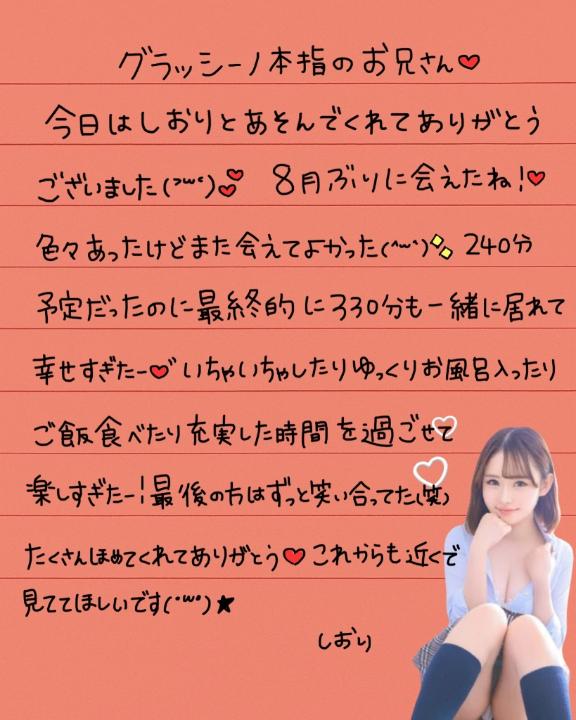 グラッシーノ本指のお兄さん♥
今日はしおりとあそんでくれてありがとう
ございました(˃ᵕ˂)💕 8月ぶりに会えたね！♥
色々あったけどまた会えてよかった(^ᵕ^) 240分
予定だったのに最終的に330分も一緒に居れて
幸せすぎたー♥いちゃいちゃしたりゆっくりお風呂入ったり
ご飯食べたり充実した時間を過ごせて
楽しすぎたー！最後の方はずっと笑い合ってた(笑)
たくさんほめてくれてありがとう♥これからも近くで
見ててほしいです(･ᵕ･)★
しおり